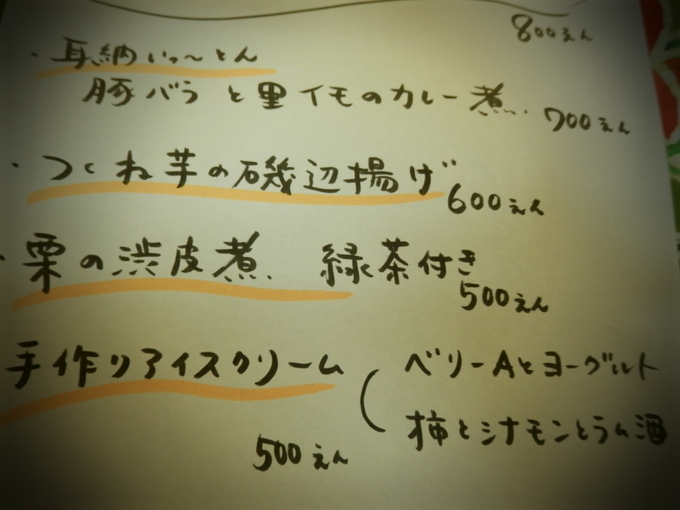 800えん
・耳納いっ〜とん
豚バラと里イモのカレー煮.
700えん
・つくね芋の磯辺揚げ
600えん
・栗の渋皮煮. 緑茶付き
500えん
手作りアイスクリーム ( ベリーAとヨーグルト
柿とシナモンとラム酒
500えん